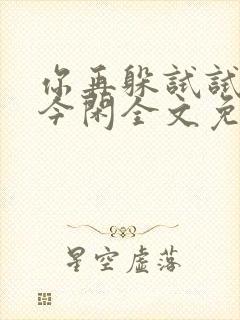 你再躲试试
今闲全文免
星空虚落